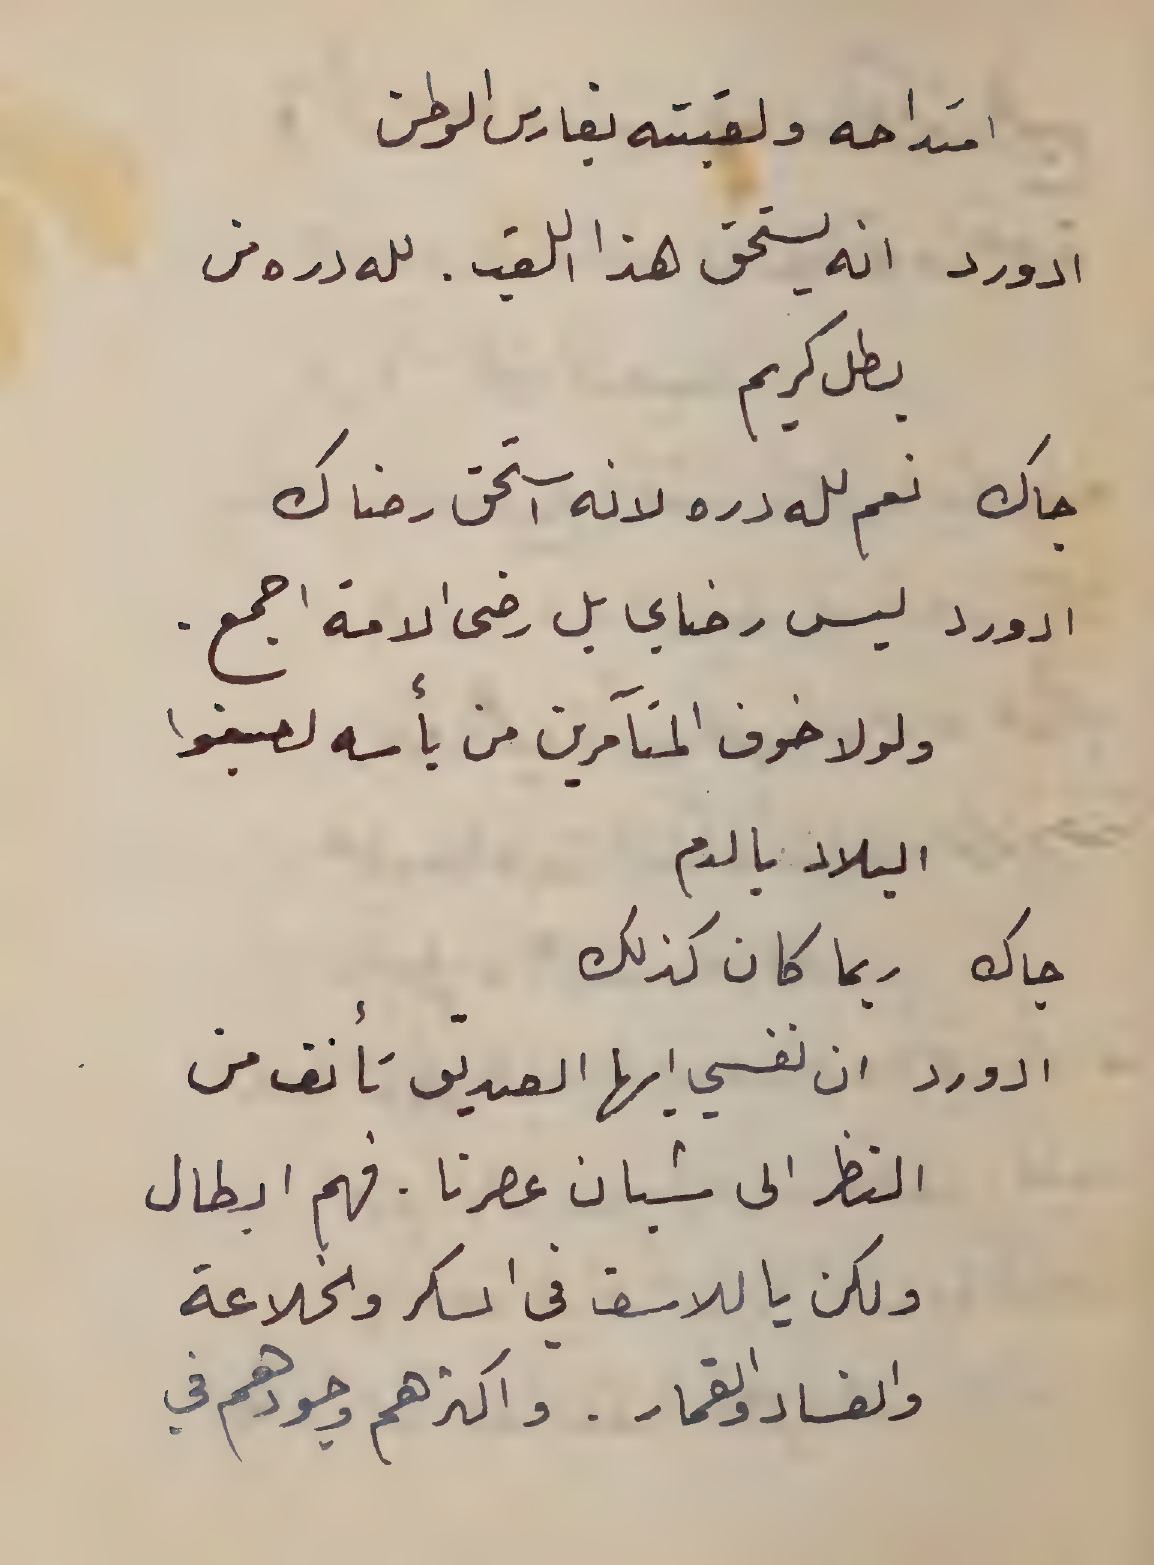 امتداحه ولقبته بفارس الوطن
ادورد انه يستحق هذا اللقب . لله دره من
بطل كريم
جاك نعم لله دره لانه آستحق رضاك
ادورد ليس رضاي بل رضى الامة اجمع .
ولولا خوف المتآمرين من بأسه لصبغوا
البلاد بالدم
جاك ربما كان كذلك
ادورد ان نفسي ايها الصديق تأنف من
النظر الى شبان عصرنا . فهم ابطال
ولكن يا للاسف في السكر والخلاعة
والفساد والقمار . واكثرهم وجودهم في